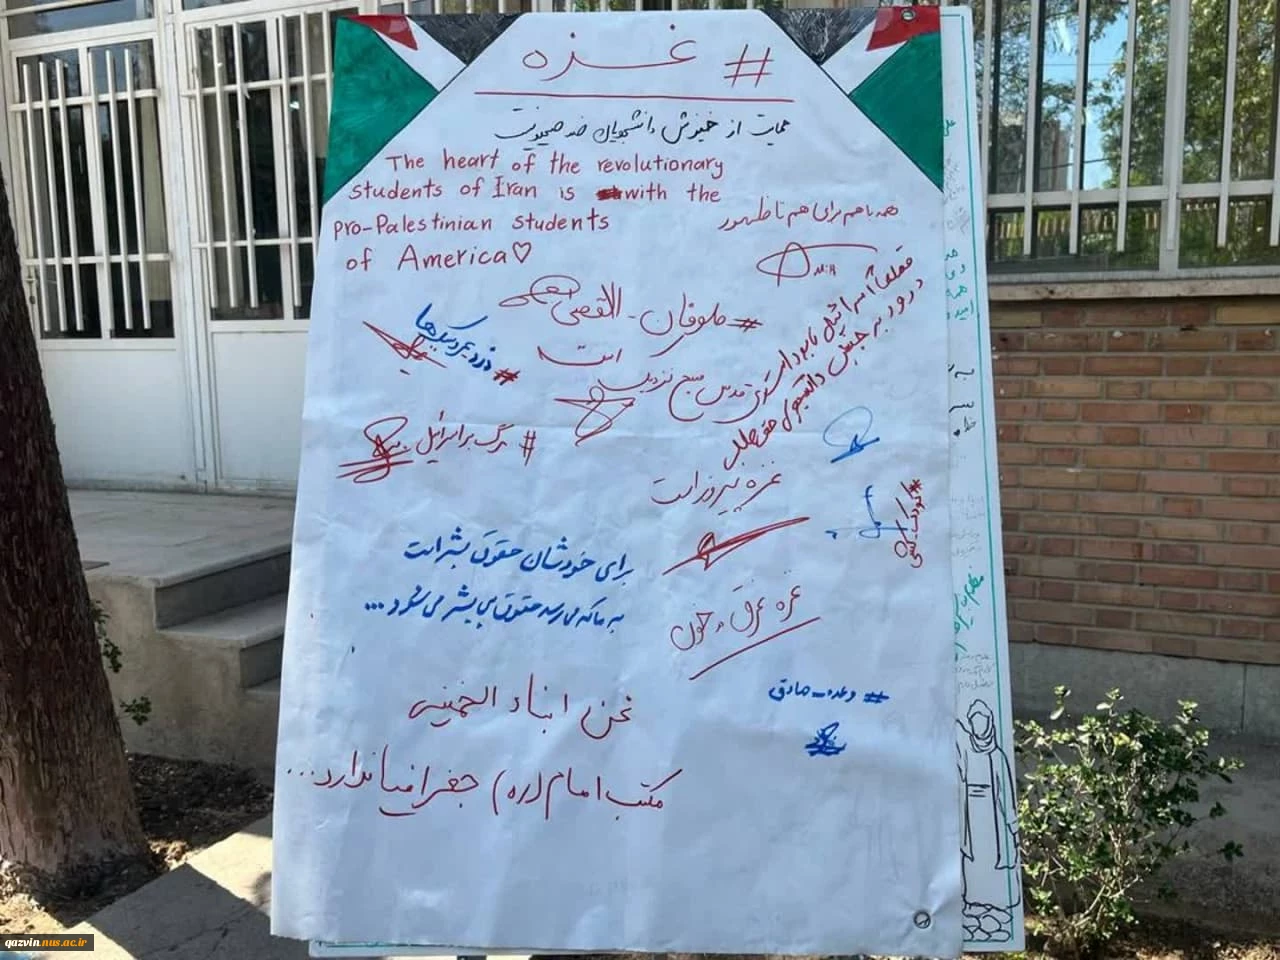 # غزه
حمایت از خیزش دانشجویان ضد صهیونیست
The heart of the revolutionary
students of Iran is with the
pro-Palestinian students
of America♡
همه با هم برای هم تا ظهور
#طوفان_الاقصی
است
قطعاً اسرائیل نابود است
درود به جنبش دانشجویی حق طلب
قدس صبح نزدیک
#مرگ بر اسرائیل
غزه پیروز است
#کودک_کشی
برای خودشان حقوق بشر است
به ما که می رسد حقوق بی بشر می شود...
غزه غرق در خون
#وعده_صادق
نحن ابناء الخمینی
مکتب امام (ره) جغرافیا ندارد...
qazvin.nus.ac.ir